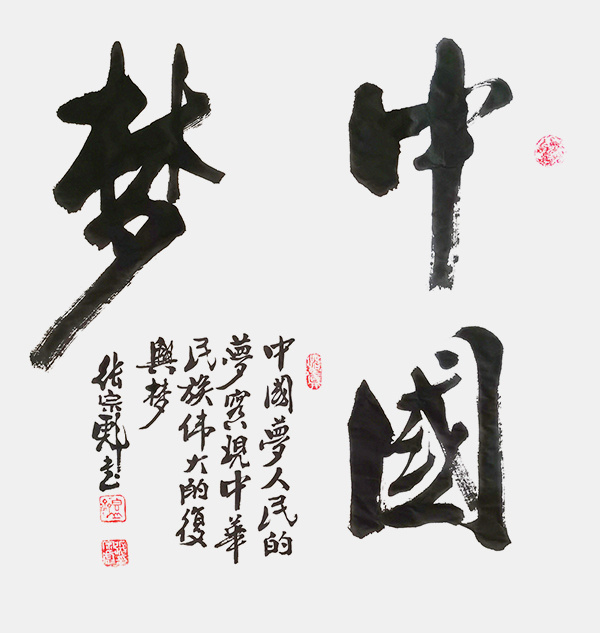 中國
梦
中國夢人民的
夢實現中華
民族伟大的復
興梦
张宗